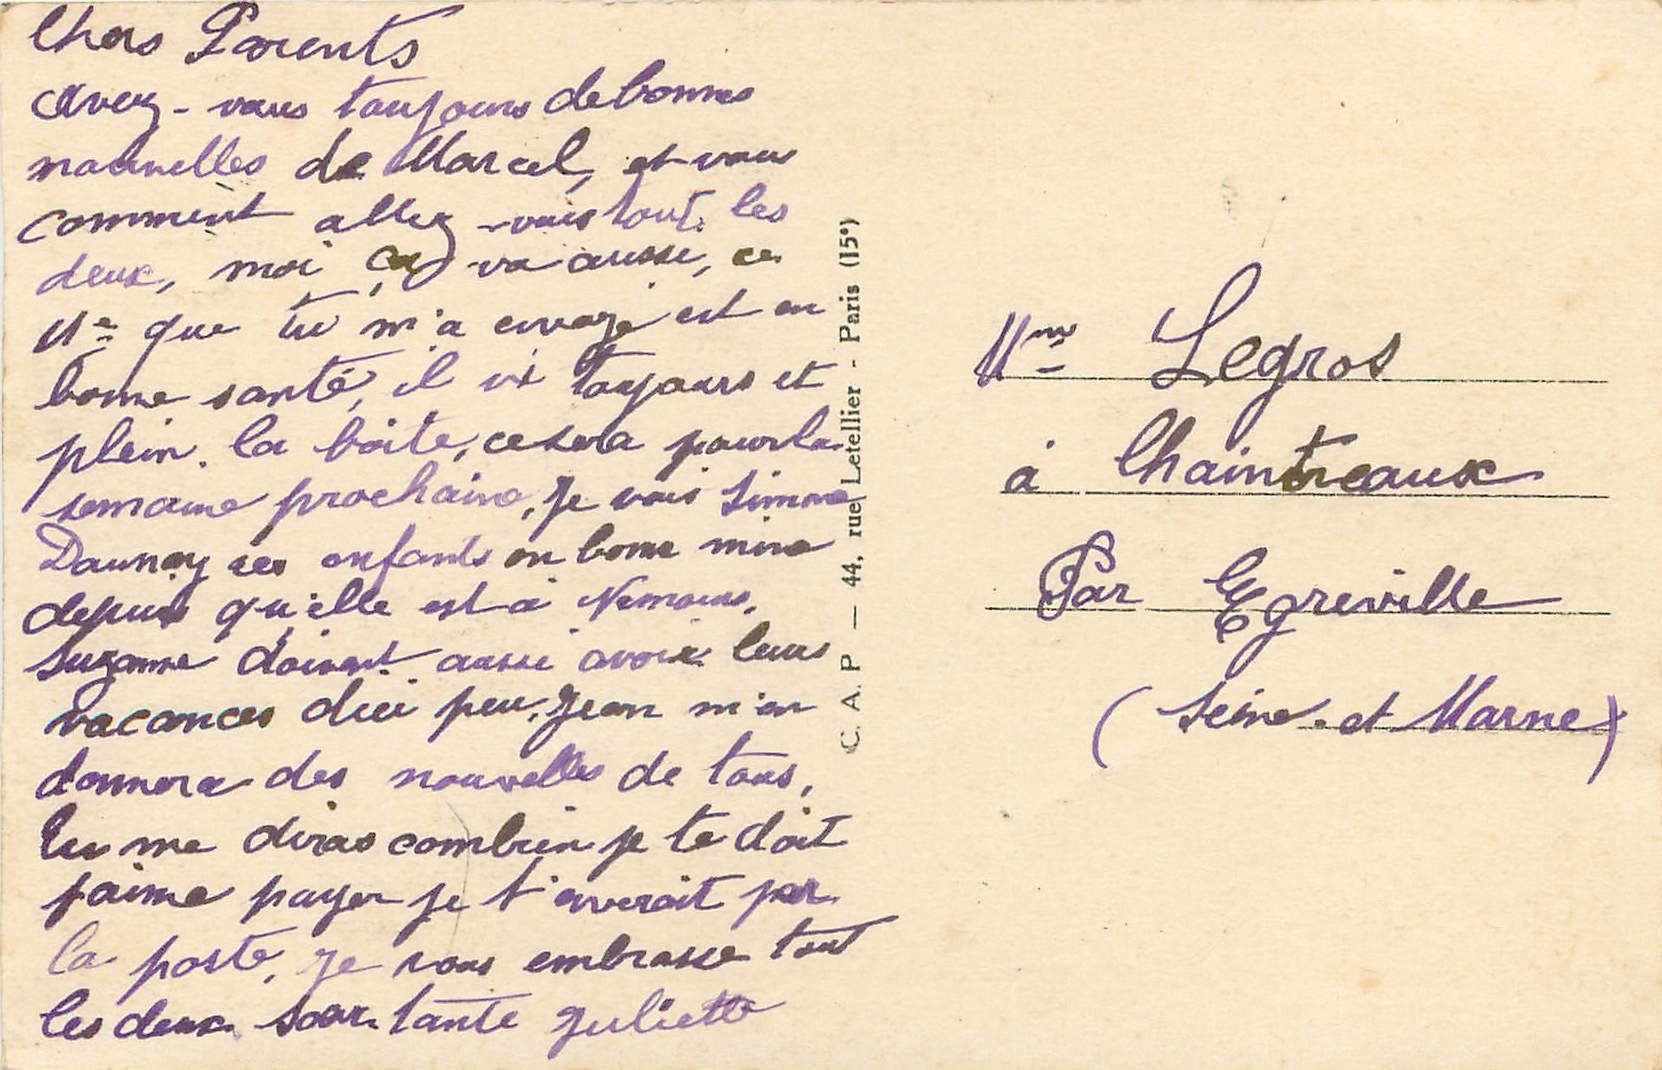 Chers Parents
Avez-vous toujours de bonnes
nouvelles de Marcel, et vous
comment allez-vous tout les
deux, moi ça va aussi, ce
que tu m'a envoyé est en
bonne santé, il vi toujours et
plein la boite, ce sera pour la
semaine prochaine, je vois Simone
Daunay ses enfants on bonne mine
depuis qu'elle est à Nemours,
Suzanne doivent aussi avoir leurs
vacances dici peu, Jean m'en
donnera des nouvelles de tous,
tu me diras combien je te doit
j'aime payer je t'enverait par
la poste, je vous embrasse tout
les deux. Soeur. tante Juliette
C. A. P — 44, rue Letellier - Paris (15°)
Mme Legros
à Chaintreaux
Par Egreville
(Seine et Marne)